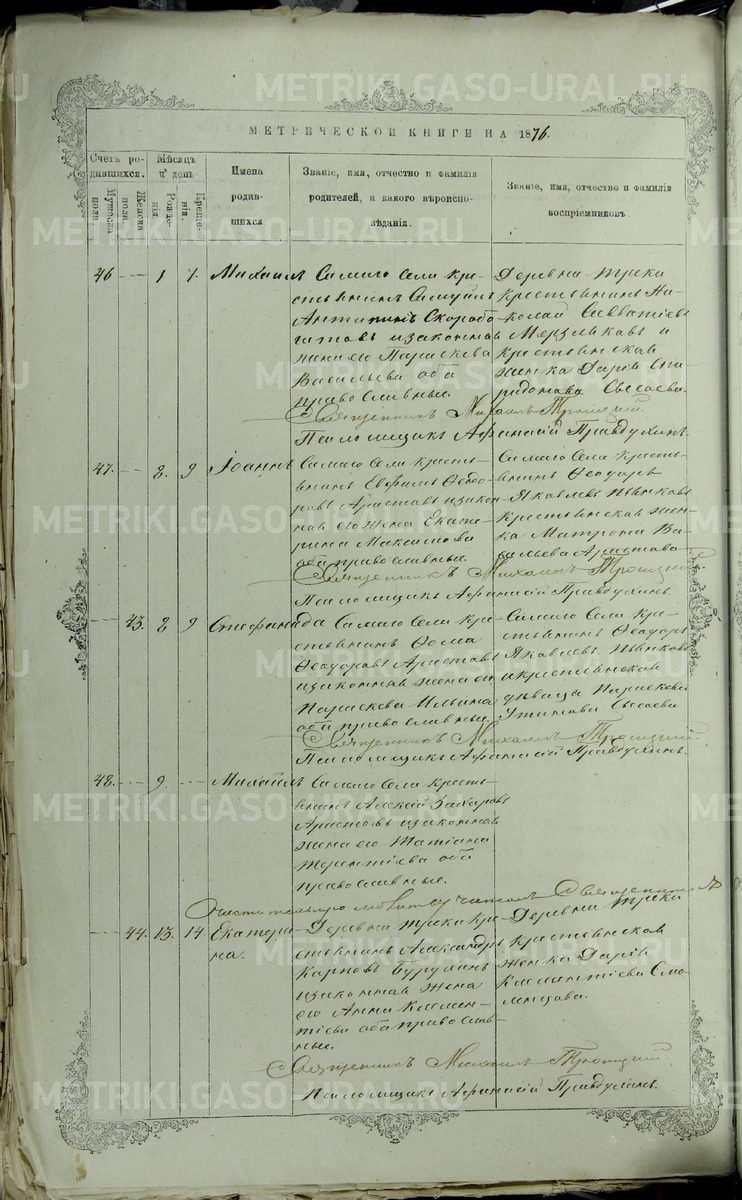 МЕТРИЧЕСКОЙ КНИГИ НА 1876.
Счетъ ро-
дившихся.
Мужеска пола.
Женска пола.
Мѣсяцъ и день.
Рожде-
нія
Креще-
нія.
Имена
родив-
шихся
Званіе, имя, отчество и фамилія
родителей, и какого вѣроиспо-
вѣданія.
Званіе, имя, отчество и фамилія
воспріемниковъ.
46 1 7. Михаилъ
Самаго Села кре-
стьянинъ Самуилъ
Антипинъ Скоробо-
гатовъ и законная
жена его Параскева
Васильева оба
православные.
Деревни Треки
крестьянинъ Ни-
колай Савватіевъ
Мерзляковъ и
крестьянская
женка Дарія Спи-
ридонова Сысоева.
Священникъ Михаилъ Троицкій.
Псаломщикъ Афанасій Правдухинъ.
47. 8. 9 Іоаннъ
Самаго Села кресть-
янинъ Евфимъ Ѳеодо-
ровъ Аристовъ и закон-
ная его жена Екате-
рина Максимова
оба православные.
Самаго Села кресть-
янинъ Ѳеодоръ
Яковлевъ Пьянковъ
крестьянская жен-
ка Матрона Ва-
сильева Аристова
Священникъ Михаилъ Троицкій.
Псаломщикъ Афанасій Правдухинъ.
43. 8 9 Стефанида
Самаго Села кре-
стьянинъ Ѳома
Ѳеодоровъ Аристовъ
и законная жена его
Параскева Ильина
оба православные.
Самаго Села кре-
стьянинъ Ѳеодоръ
Яковлевъ Пьянковъ
и крестьянская
дѣвица Параскева
Сысоева
Священникъ Михаилъ Троицкій.
Псаломщикъ Афанасій Правдухинъ.
48. 9 Михаилъ
Самаго Села кресть-
янинъ Алексій Захаровъ
Аристовъ и законная
жена его Татіана
Терентіева оба
православные.
Священникъ
44. 13. 14. Екатери-
на.
Деревни Треки кре-
стьянинъ Александръ
Карповъ Бурухинъ
и законная жена
его Анна Климен-
тіева оба православ-
ные.
Деревни Треки
крестьянская
женка Дарія
Климентіева Смо-
ленцова.
Священникъ Михаилъ Троицкій.
Псаломщикъ Афанасій Правдухинъ.
METRIKI.GASO-URAL.RU